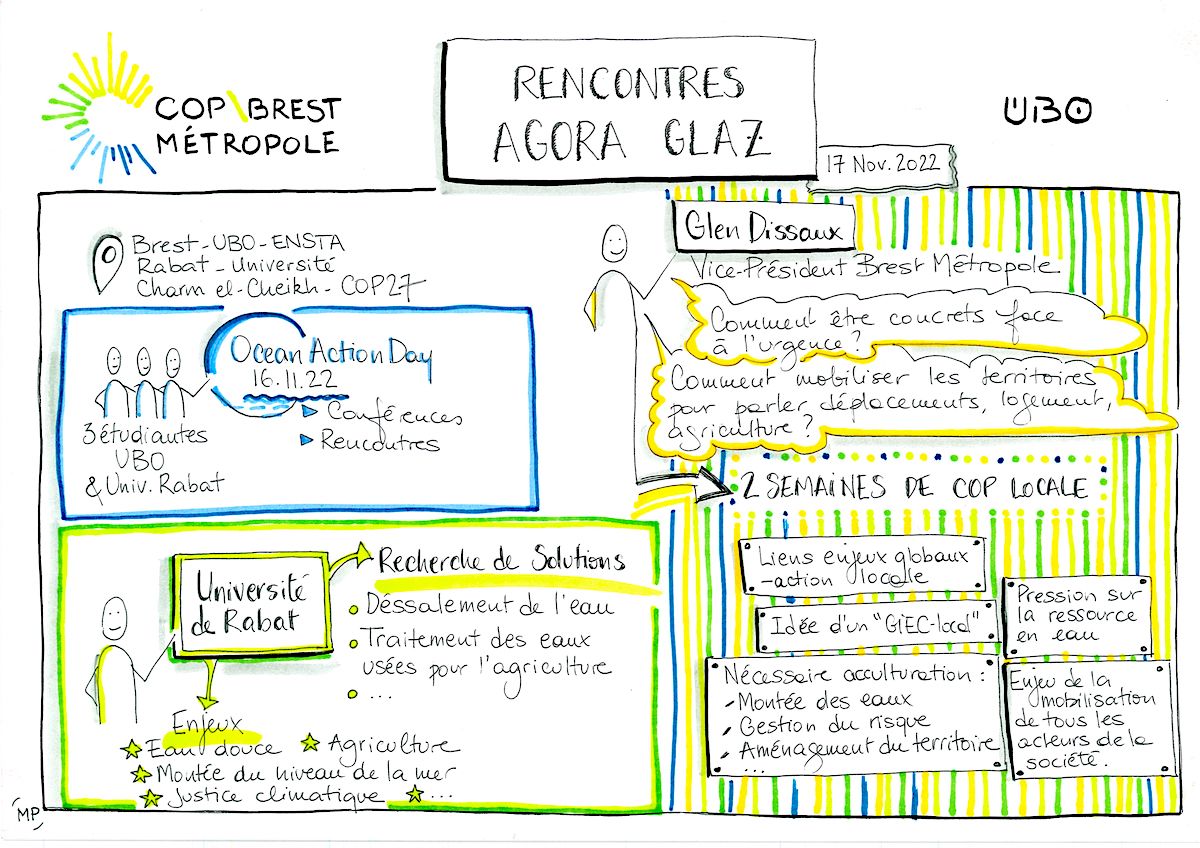 COP\BREST
MÉTROPOLE
RENCONTRES
AGORA GLAZ
UBO
17 Nov. 2022
Brest - UBO - ENSTA
Rabat - Université
Charm el-Cheikh - COP27
Ocean Action Day
16.11.22
Conférences
Rencontres
3 étudiantes
UBO
& Univ. Rabat
Université
de Rabat
Recherche de Solutions
Déssalement de l'eau
Traitement des eaux
usées pour l'agriculture
...
Enjeux
Eau douce
Agriculture
Montée du niveau de la mer
Justice climatique
...
Glen Dissaux
Vice-Président Brest Métropole
Comment être concrets face
à l'urgence ?
Comment mobiliser les territoires
pour parler déplacements, logement,
agriculture ?
2 SEMAINES DE COP LOCALE
Liens enjeux globaux
-action locale
Idée d'un "GIEC-local"
Pression sur
la ressource
en eau
Nécessaire acculturation :
- Montée des eaux
- Gestion du risque
- Aménagement du territoire
...
Enjeu de la
mobilisation
de tous les
acteurs de la
société.
MP